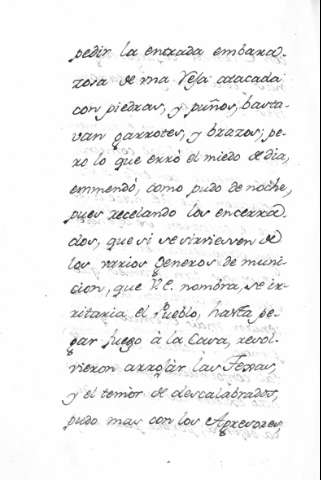 pedir la entrada embara-
zosa de una Reja atacada
con piedras, y puños, basta-
van garrotes, y brazos; pe-
ro lo que erró el miedo de dia,
emmendó, como pudo de noche,
pues recelando los encerra-
dos, que si se sirviessen de
los varios generos de muni-
cion, que V.E. nombra, se ir-
ritaria el Pueblo, hasta pe-
gar fuego à la Casa, resol-
vieron arrojar las Texas,
y el temor de descalabrados,
pudo mas con los Agresores,